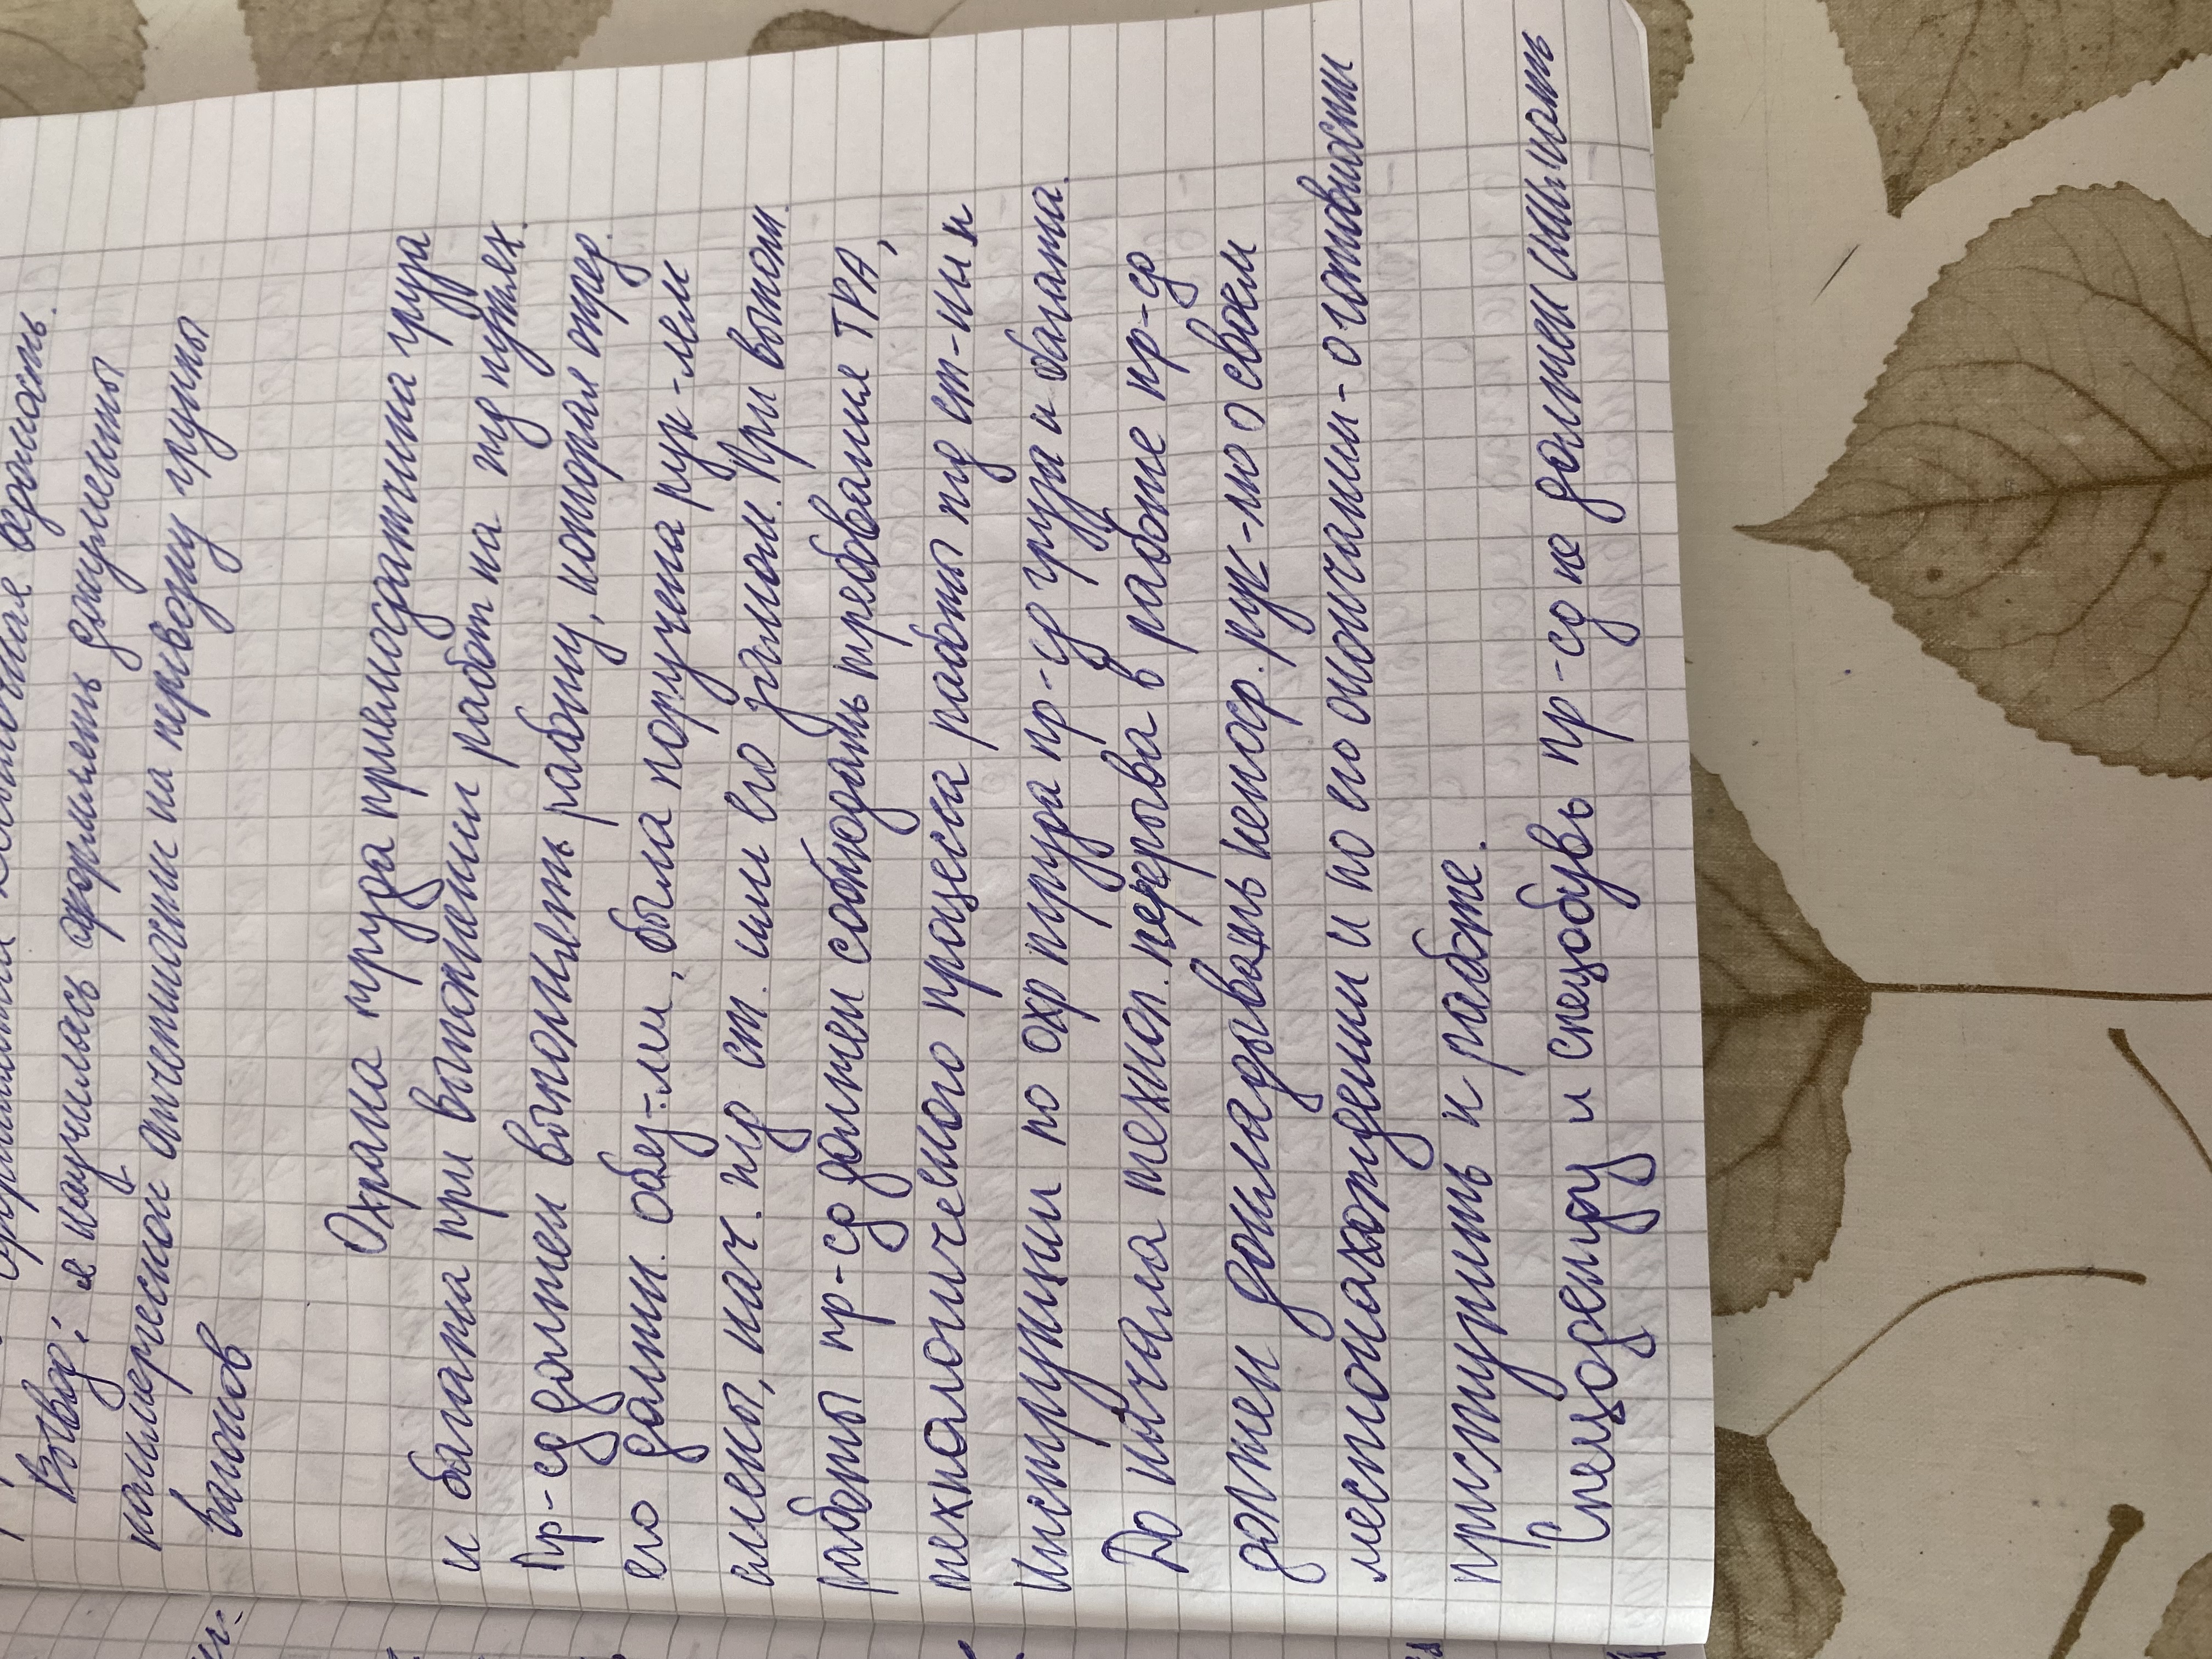 ведомость.
Вывод: я научилась оформлять документы
коммерческой отчетности на перевозку группы
вагонов
Охрана труда приемосдатчика груза
и багажа при выполнении работ на жд путях.
Пр-сд должен выполнять работу, которая опред.
его должн. обяз-ми, была поручена рук-лем
смены, нач. жд ст. или его замом. При выпол.
работы пр-сд должен соблюдать требования ТРА,
технологического процесса работы жд ст-ии и
Инструкции по охр труда пр-сд груза и багажа.
До начала технол. перерыва в работе пр-сд
должен докладывать непоср. рук-лю о своем
местонахождении и по его окончании - о готовности
приступить к работе.
Спецодежду и спецобувь пр-сд не должен снимать